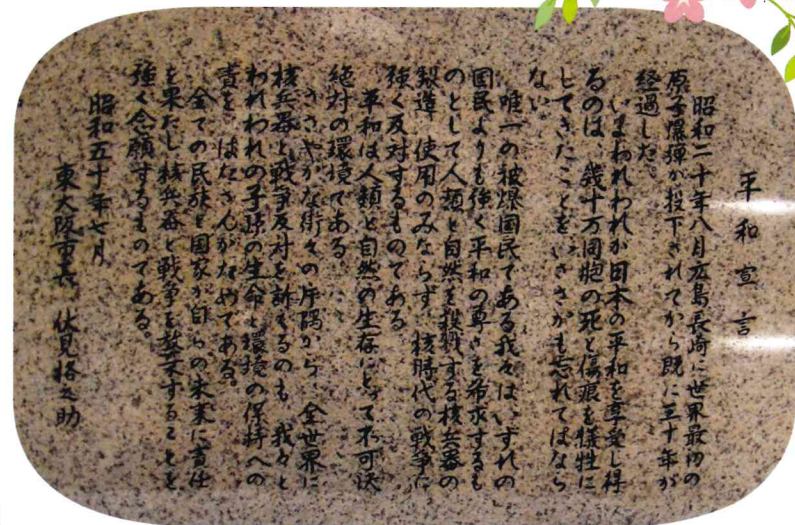 平和宣言
昭和二十年八月広島長崎に世界最初の
原子爆弾が投下されてから既に三十年が
経過した。
いまわれわれが日本の平和を享受し得
るのは、幾十万同胞の死と傷痕を犠牲に
してきたことをいささかも忘れてはなら
ない。
唯一の被爆国民である我々は、いずれの
国民よりも強く平和の尊さを希求するも
のとして人類と自然を殺戮する核兵器の
製造、使用のみならず、核時代の戦争に
強く反対するものである。
平和は人類と自然の生存にとって不可欠
絶対の環境である。
ささやかな街々の片隅から、全世界に
核兵器と戦争反対を訴えるのも、我々と
われわれの子孫の生命と環境の保持への
責を、はたさんがためである。
全ての民族と国家が自らの未来に責任
を果たし核兵器と戦争を放棄することを
強く念願するものである。
昭和五十年七月
東大阪市長 伏見格之助